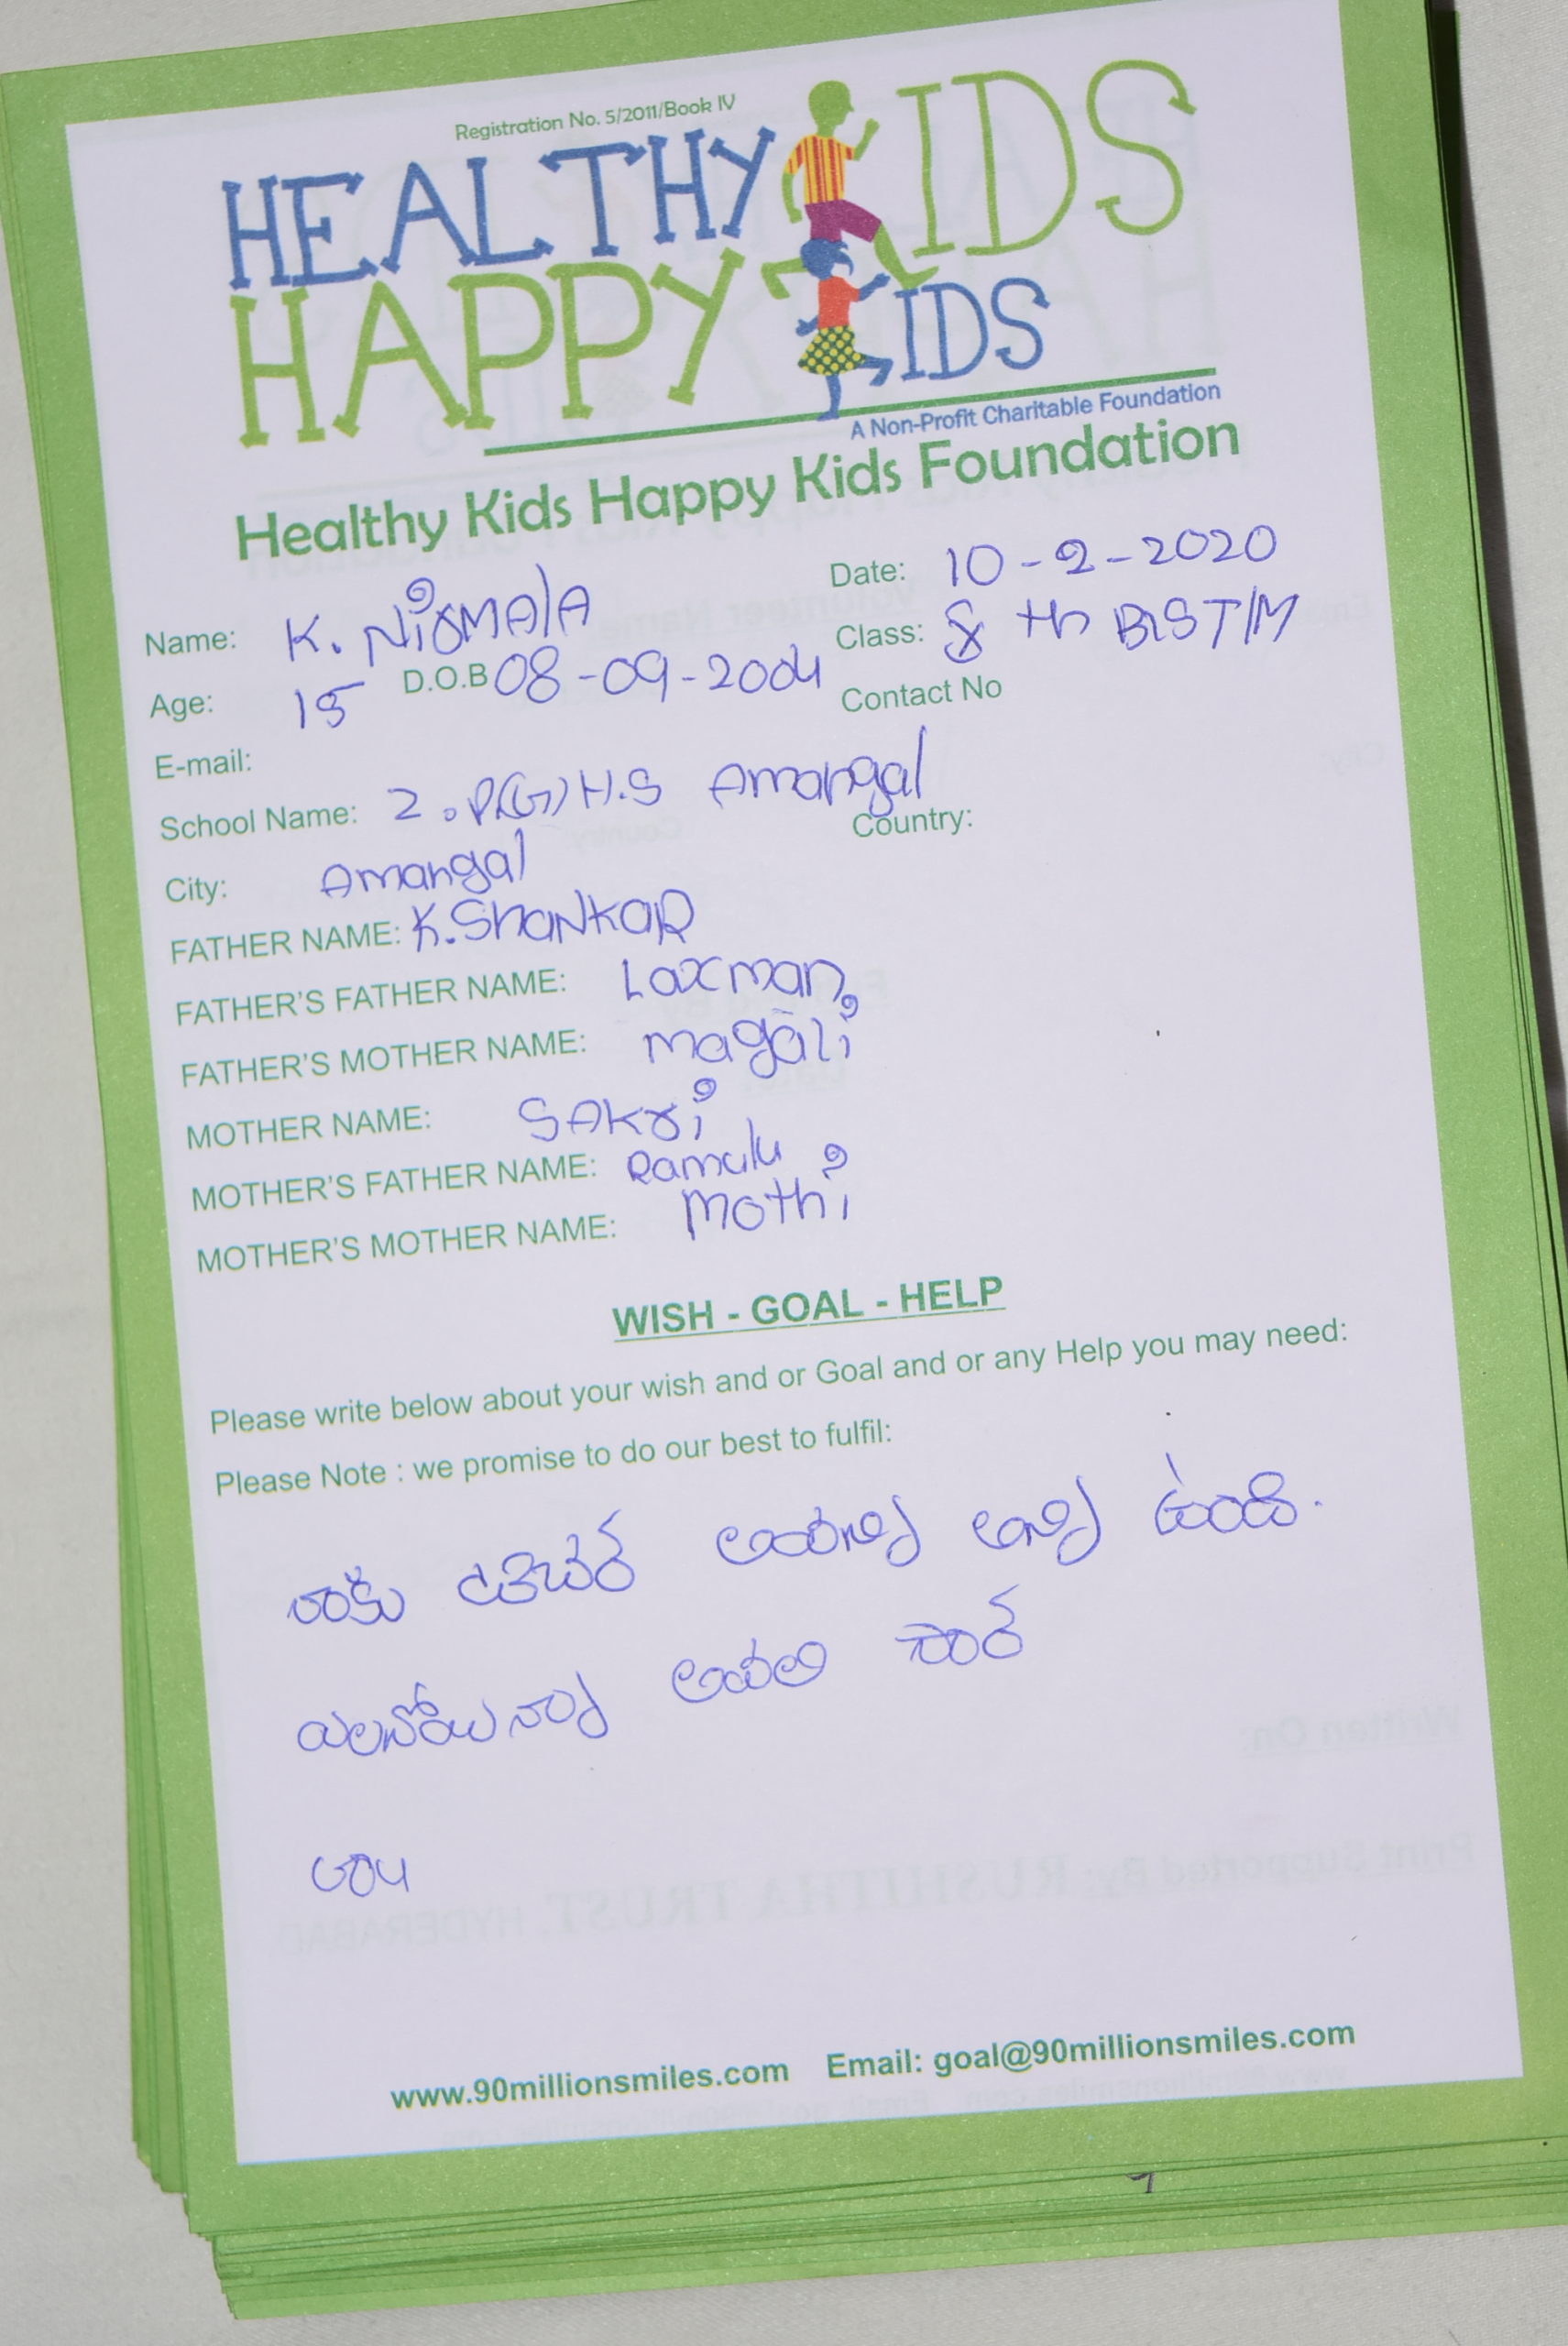 Registration No. 5/2011/Book IV
HEALTHY KIDS
HAPPY KIDS
A Non-Profit Charitable Foundation
Healthy Kids Happy Kids Foundation
Date: 10-2-2020
Name: K. NiRMAlA
Class: 8 th
Age: 15 D.O.B 08-09-2004
Contact No
E-mail:
School Name: Z.P(G)H.S Amangal
Country:
City: Amangal
FATHER NAME: K.ShaNkaR
FATHER'S FATHER NAME: Laxman
FATHER'S MOTHER NAME: magali
MOTHER NAME: SAKri
MOTHER'S FATHER NAME: Ramulu
MOTHER'S MOTHER NAME: Mothi
WISH - GOAL - HELP
Please write below about your wish and or Goal and or any Help you may need:
Please Note : we promise to do our best to fulfil:
నాకు టిచర్ ఉంది.
www.90millionsmiles.com Email: goal@90millionsmiles.com